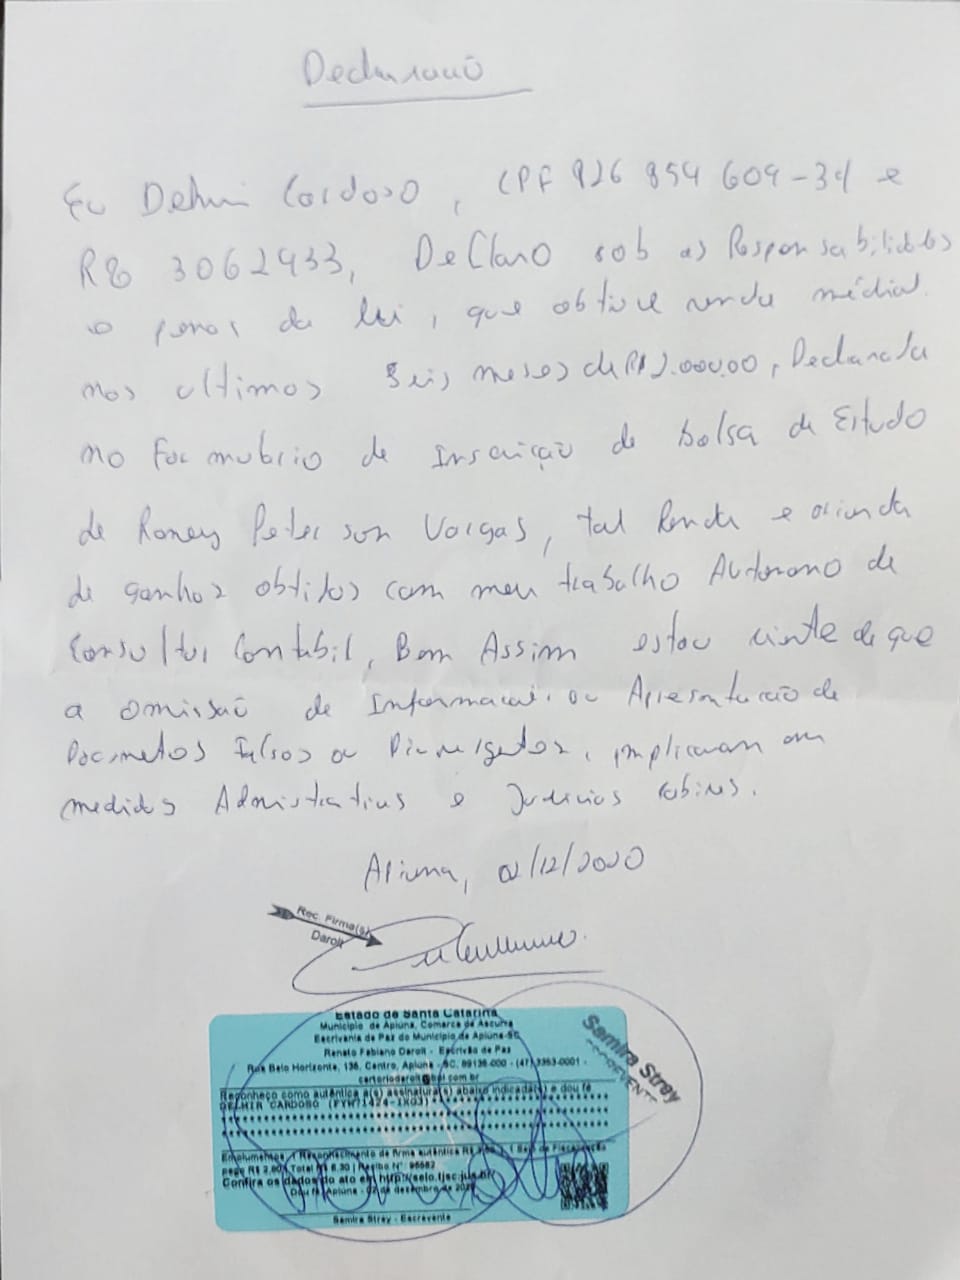 Declaração
Eu Delmir Cardoso, CPF 926 854 609-34 e
RG 3062933, DeClaro sob as Responsabilidades
e penas da lei, que obtive renda médial
nos ultimos Seis meses de R$ 2.000.00, Declarada
no Formulario de Inscrição de bolsa de Estudo
de Roney Peterson Vargas, tal Renda e oriunda
de ganhos obtidos com meu trabalho Autonomo de
Consultor Contabil, Bem Assim estou ciente de que
a omissão de Informacai. ou Apresentacão de
Documetos Falsos ou, implicaram em
medidas Admistrativas e Judicias cabives.
Apiuna, 02/12/2020
Rec. Firma(s)
Daroit
Estado de Santa Catarina
Município de Apiúna, Comarca de Ascurra
Escrivania de Paz do Município de Apiúna-SC
Renato Fabiano Daroit - Escrivão de Paz
Rua Belo Horizonte, 136, Centro, Apiúna - SC, 89135-000 - (47) 3353-0001 -
cartoriodaroit@bol.com.br
Reconheço como autêntica a(s) assinatura(s) abaixo indicada(s) e dou fé
DELMIR CARDOSO (FYW71424-1XGJ)
Emolumentos: 1 Reconhecimento de firma autêntica R$ 1 Selo de Fiscalização
pago R$ 2,80 Total R$ 6,30 | Recibo Nº
Confira os dados do ato em http://selo.tjsc.jus.br/
Dou fé, Apiúna - 02 de dezembro de 2020
Samira Strey - Escrevente
Samira Strey
ESCREVENTE